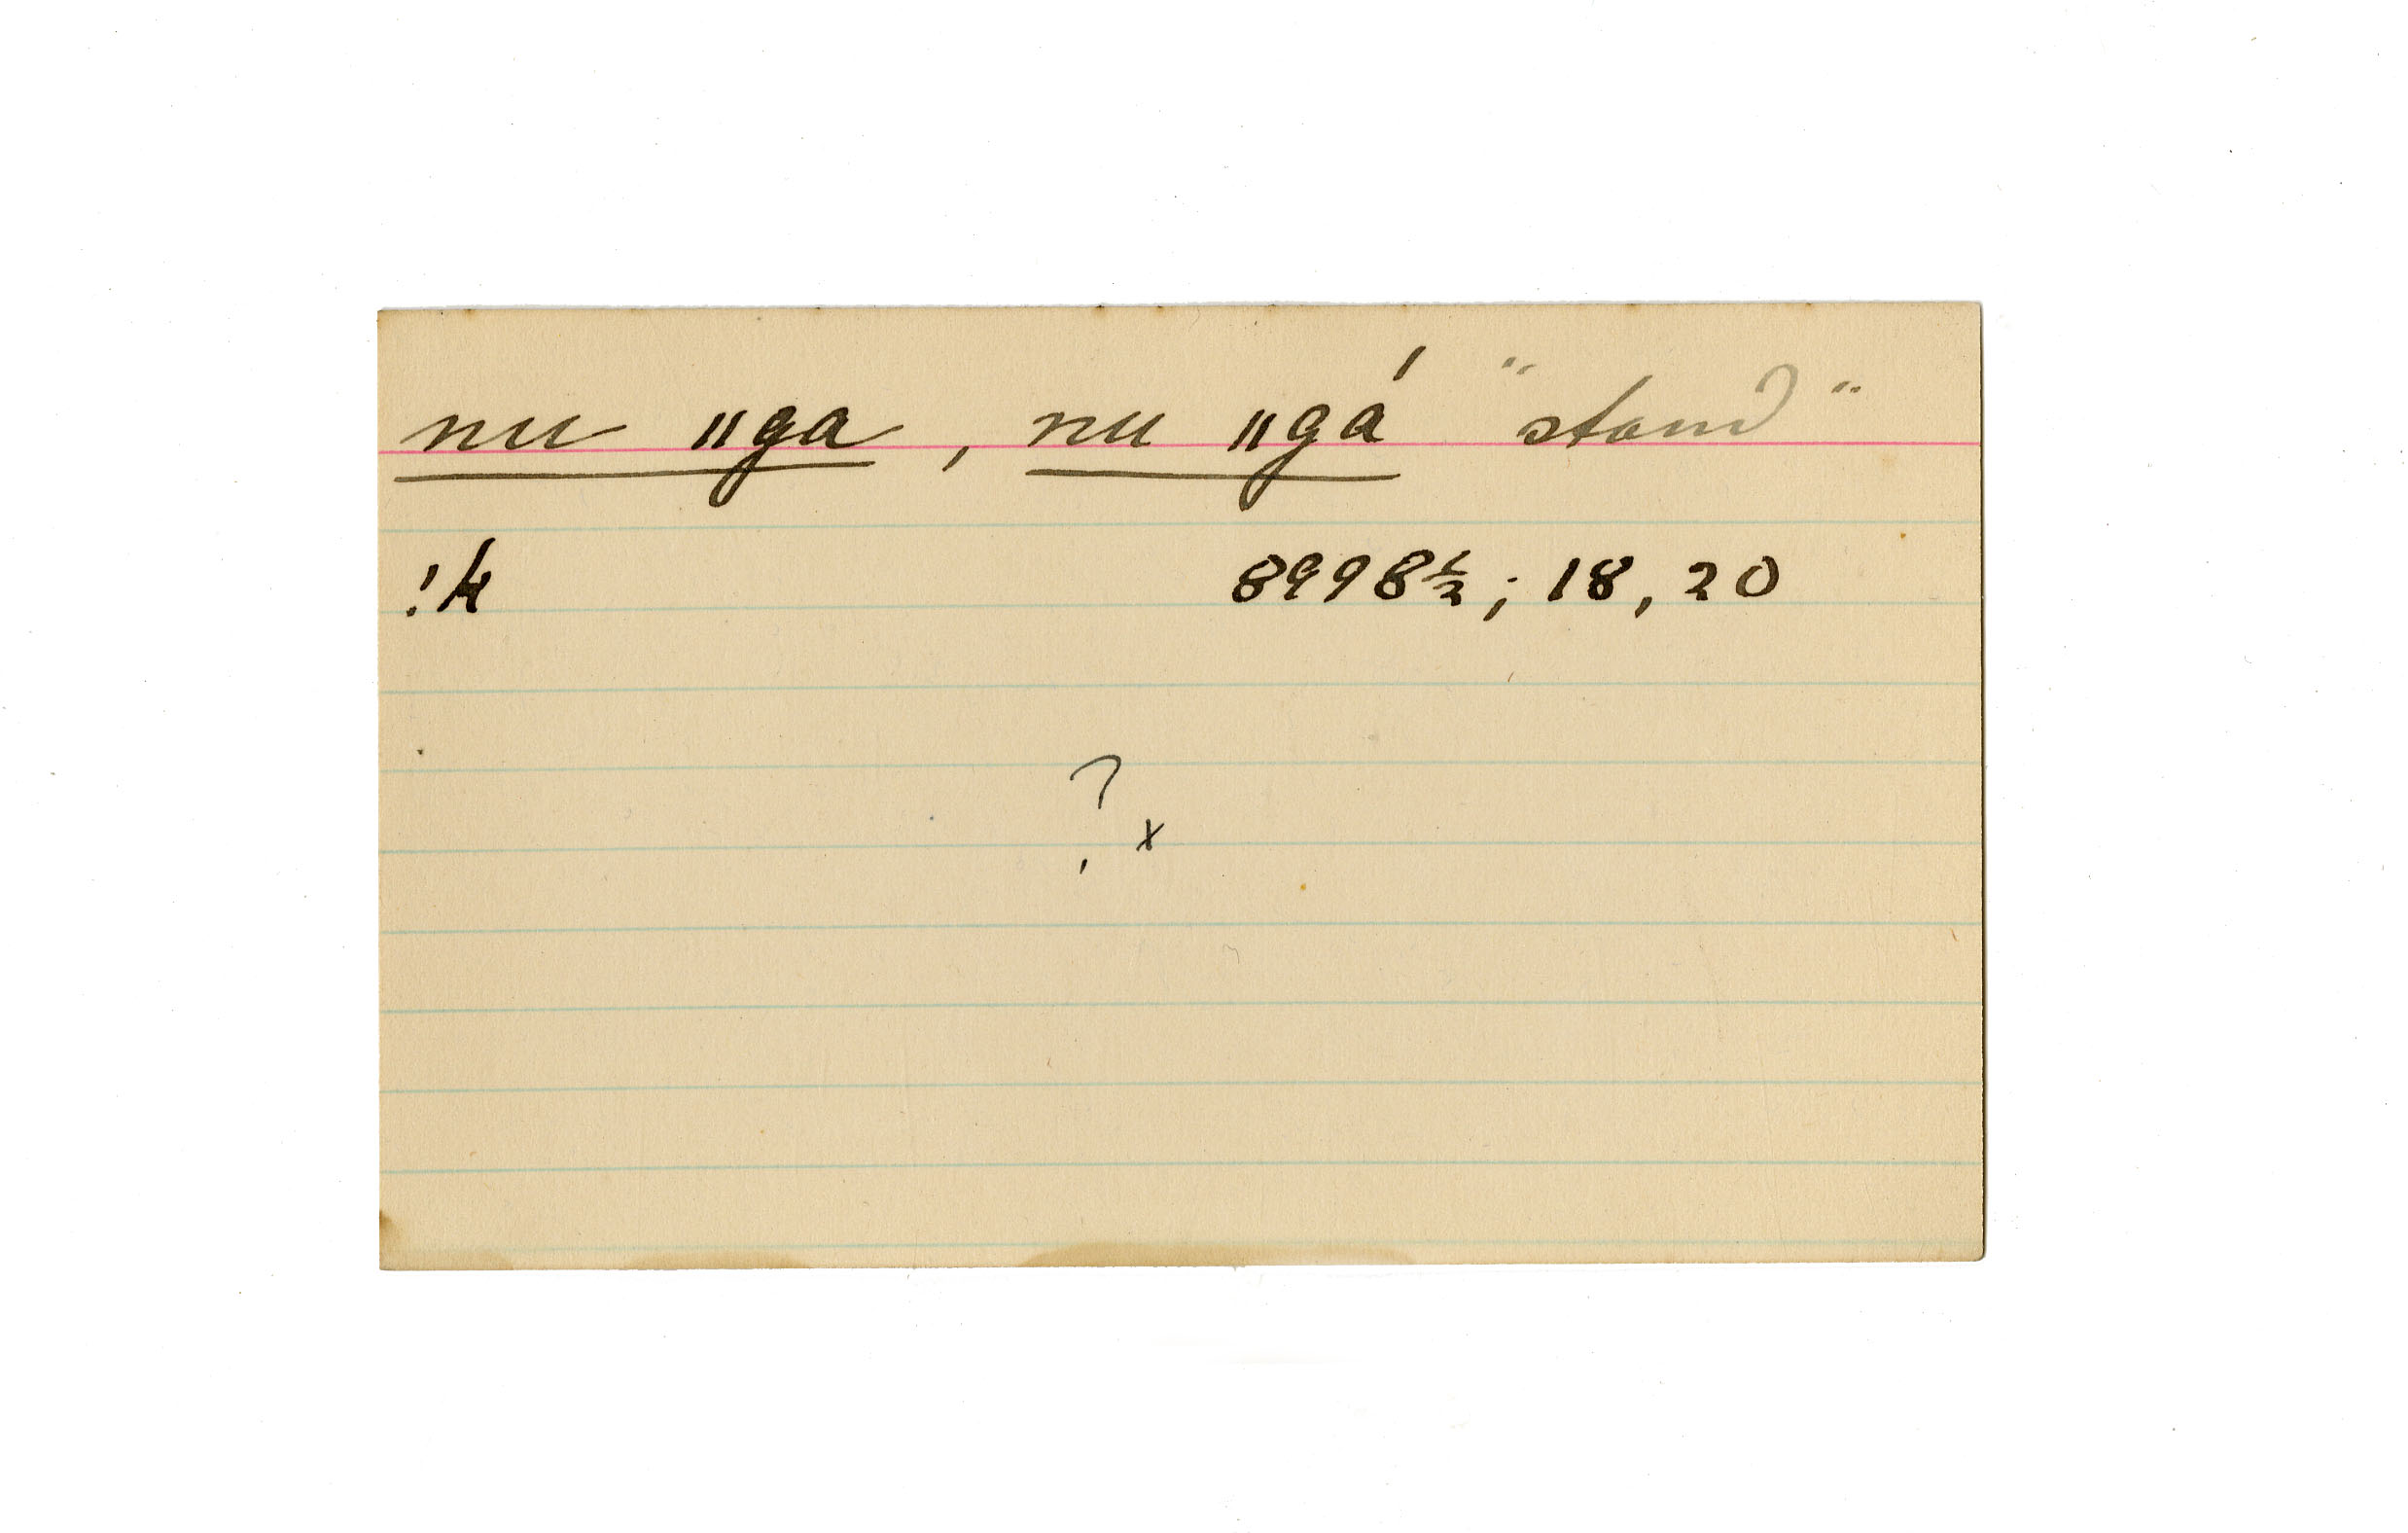 nu ǁga, nu ǁgá "stand"
!k 8998½; 18, 20
? x